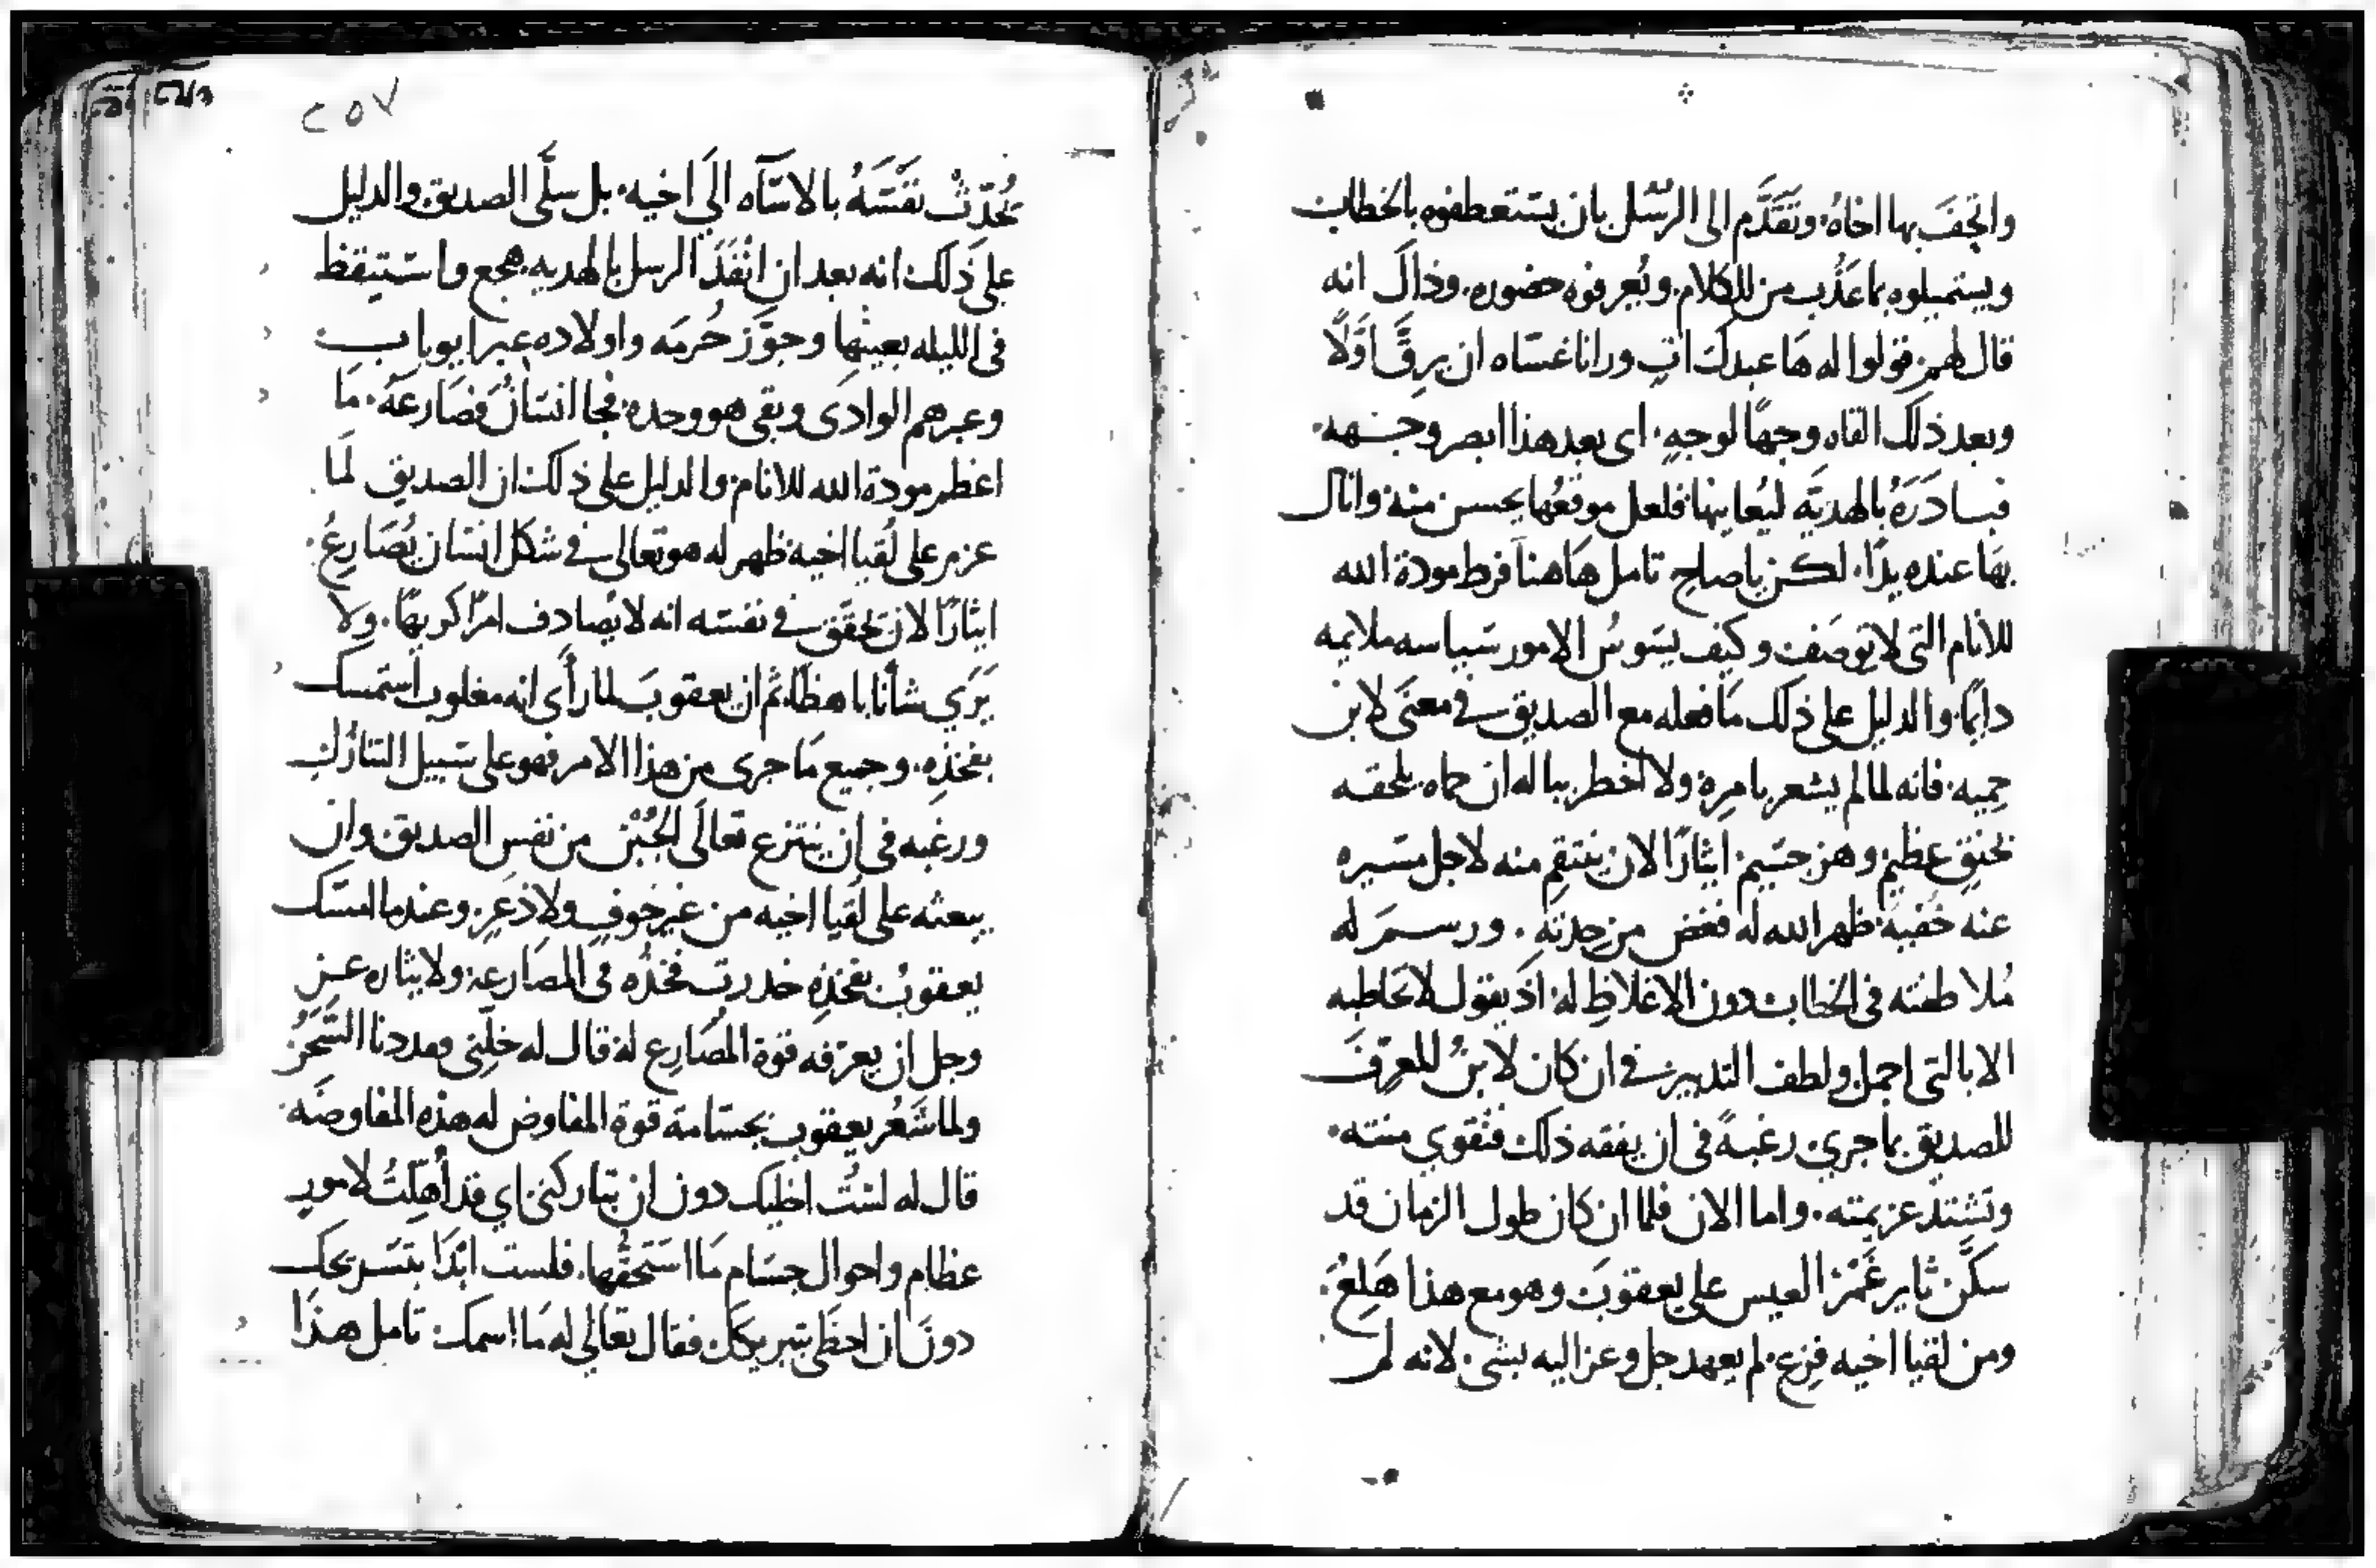 واتحفَ بها اخاهُ وتَقَدَّم الى الرسُل بان يستعطفوه بالخطاب
ويستميلوه بما عَذُب من الكلام ويُعرفوه حضوره وذاكَ انه
قال لهم قولوا له هَا عبدك اتٍ ورانا غساه ان يرِقَّ اوَّلًا
وبعد ذلك القاه وجهًا لوجهٍ اى بعد هذا ابصر وجهه
فبادَرَهُ بالهديَّه ليُعاينها فلعل موقعُها يحسن منه وانال
بها عنده يدًا لكن ياصاح تامل هَاهنا فرط مودة الله
للانام التى لا توصَف وكيف يسَوسُ الامور سياسه ملايمه
دايمًا والدليل على ذلك مَا فعله مع الصديق في معنَى لابن
حميه فانه لما لم يشعر بامرِه ولا اخطر بباله ان حماه يلحقه
بحنقٍ عظيم وهز جسيم ايثارًا لان ينتقم منه لاجل مسَيره
عنه خُفيهً ظهر الله له فغض من حدتهِ ورسمَ له
مُلاطفته فى الخطاب دون الاغلاظِ له اذ يقول لا تخاطبه
الا بالتى اجمل ولطف التدبير في ان كان لابنُ المعرِّفَ
للصديق بما جرى رغبةً فى ان يفقه ذلك فتقوي منته
وتشتد عزيمته واما الان فلما ان كان طول الزمان قد
سكَّن ثاير غَمْز العيس على يعقوبَ وهو مع هذا هَلِعُ
ومن لقيا اخيه فزع لم يعهد جل وعز اليه بشى لانه لم
٢٥٧
يُحدّثْ نفسَهُ بالاسَآه الَي اخيه بل سلَّى الصديق والدليل
على ذَلك انه بعد ان انْفَذَ الرسل بالهديه هجع واستيقظ
فى الليله بعينها وجوَّز حُرمَه واولاده عبرا يوباب
وعبرهم الوادَى وبقى هو وحده فجا انسَانُ فصَارعَهُ مَا
اعظم مودة الله للانام والدليل على ذلك ان الصديق لمَا
عزم على لُقيا اخيه ظهر له هو تعالى في شكل انسَان يُصَارعُ
ايثارًا لان تحقَّق في نفسه انه لا يُصادف امرًا كريهًا ولا
يَرَي شأنًا باهظًا ثم ان يعقوبَ لما رأى انه مغلوب استمسك
بفخذِه وجميع مَا جرى من هذا الامر فهو على سَبيل التنازُل
ورغبه فى ان ينتزع تعالَى الجُبْن من نفسِ الصديق وان
يبعثه على لقيا اخيه من غير خوفٍ ولا ذعرٍ وعندما امسَك
يعقوبُ بفخذِه خدرت فخذُه فى المصَارعه ولايثاره عز
وجل ان يعرّفه قوة المُصَارع له قال له خلّينى فعددنا السَّحَرُ
ولما شَعُر يعقوب بجسَامة قوة المفاوض له هذه المفاوضَه
قال له لستُ اخليك دون ان تباركنى اي قد أُهِّلتُ لامور
عظام واحوال جسَام مَا استَحقُّها فلست ابَدًا بتسَريحك
دونَ ان احظَى بتبريكك فقال تعالي له مَا اسمك تامل هذَا